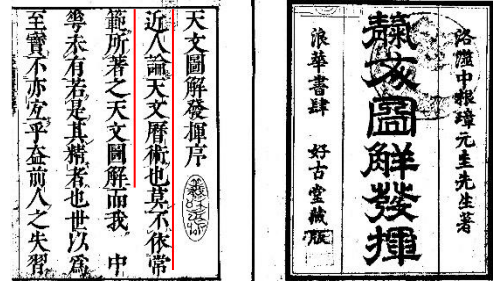 洛中根璋元圭先生著
靝文圖解發揮
浪華書肆 好古堂藏版
天文圖解發揮序
近人論天文曆術也莫不依常
範所著之天文圖解而我 中
華未有若是其精者也世以爲
至寶不亦宜乎盖前人之失習